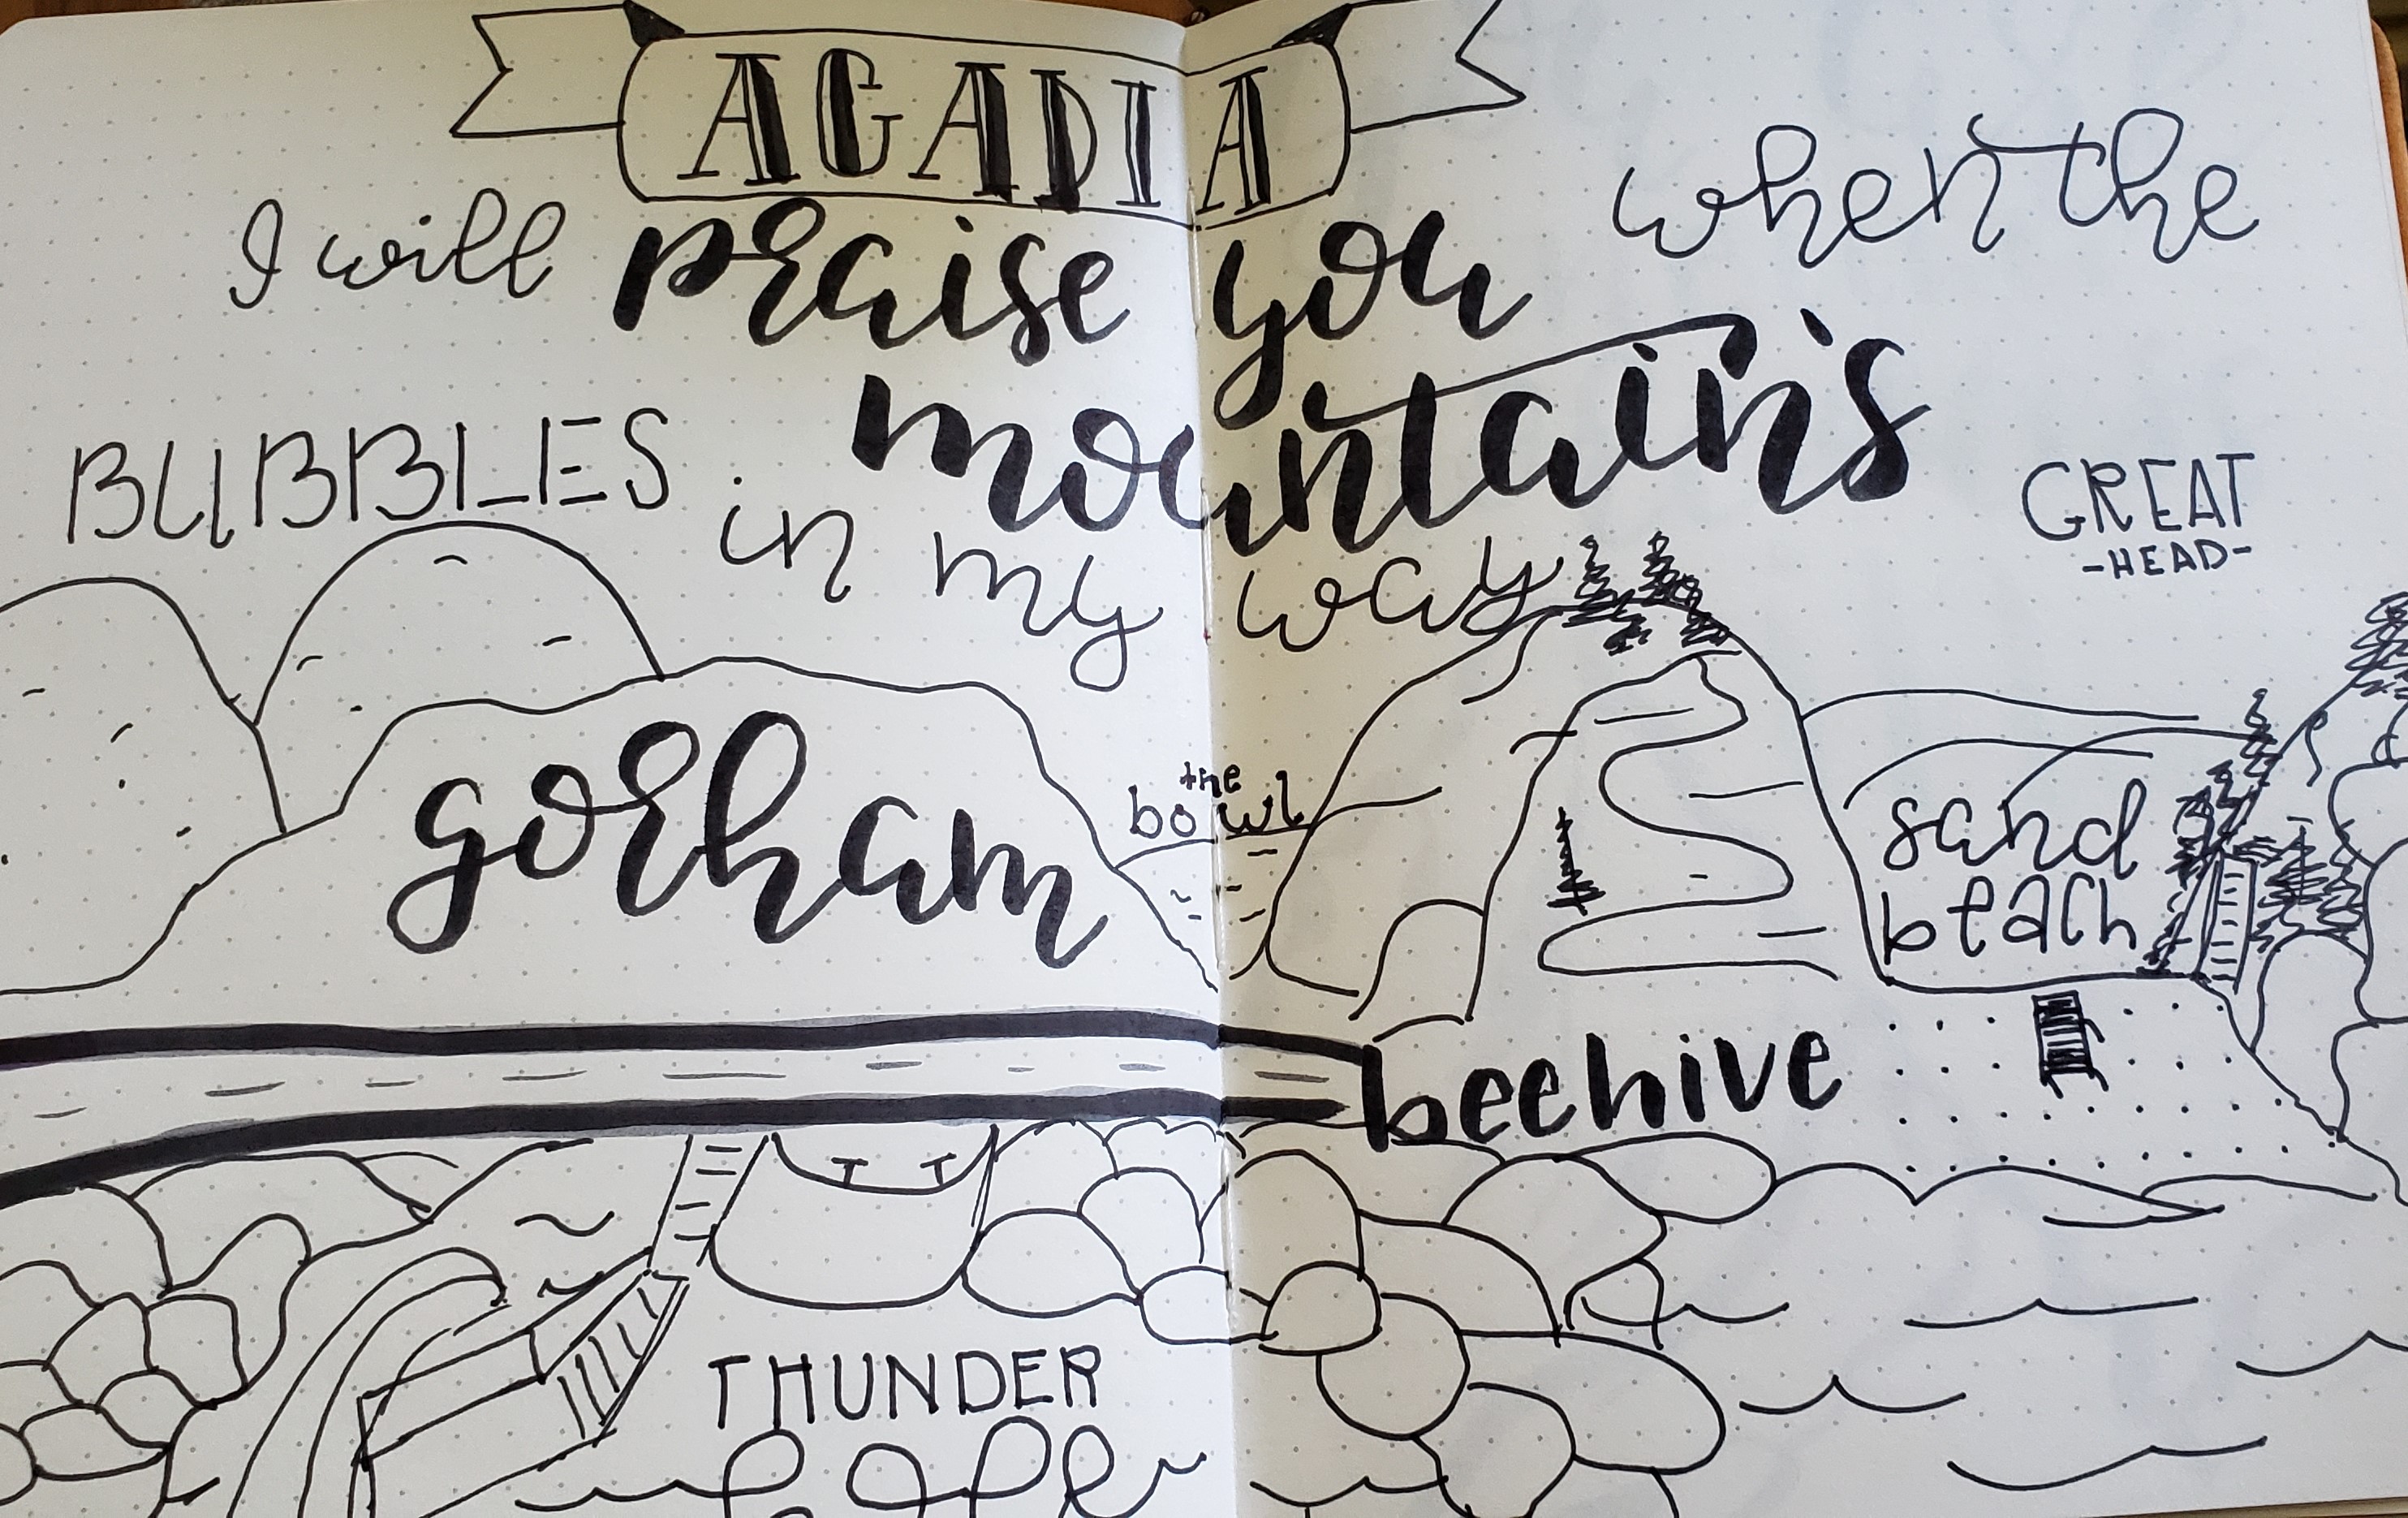 ACADIA
I will praise you when the
mountain's
in my way
BUBBLES
GREAT
-HEAD-
gorham
the
bowl
sand
beach
beehive
THUNDER
hole